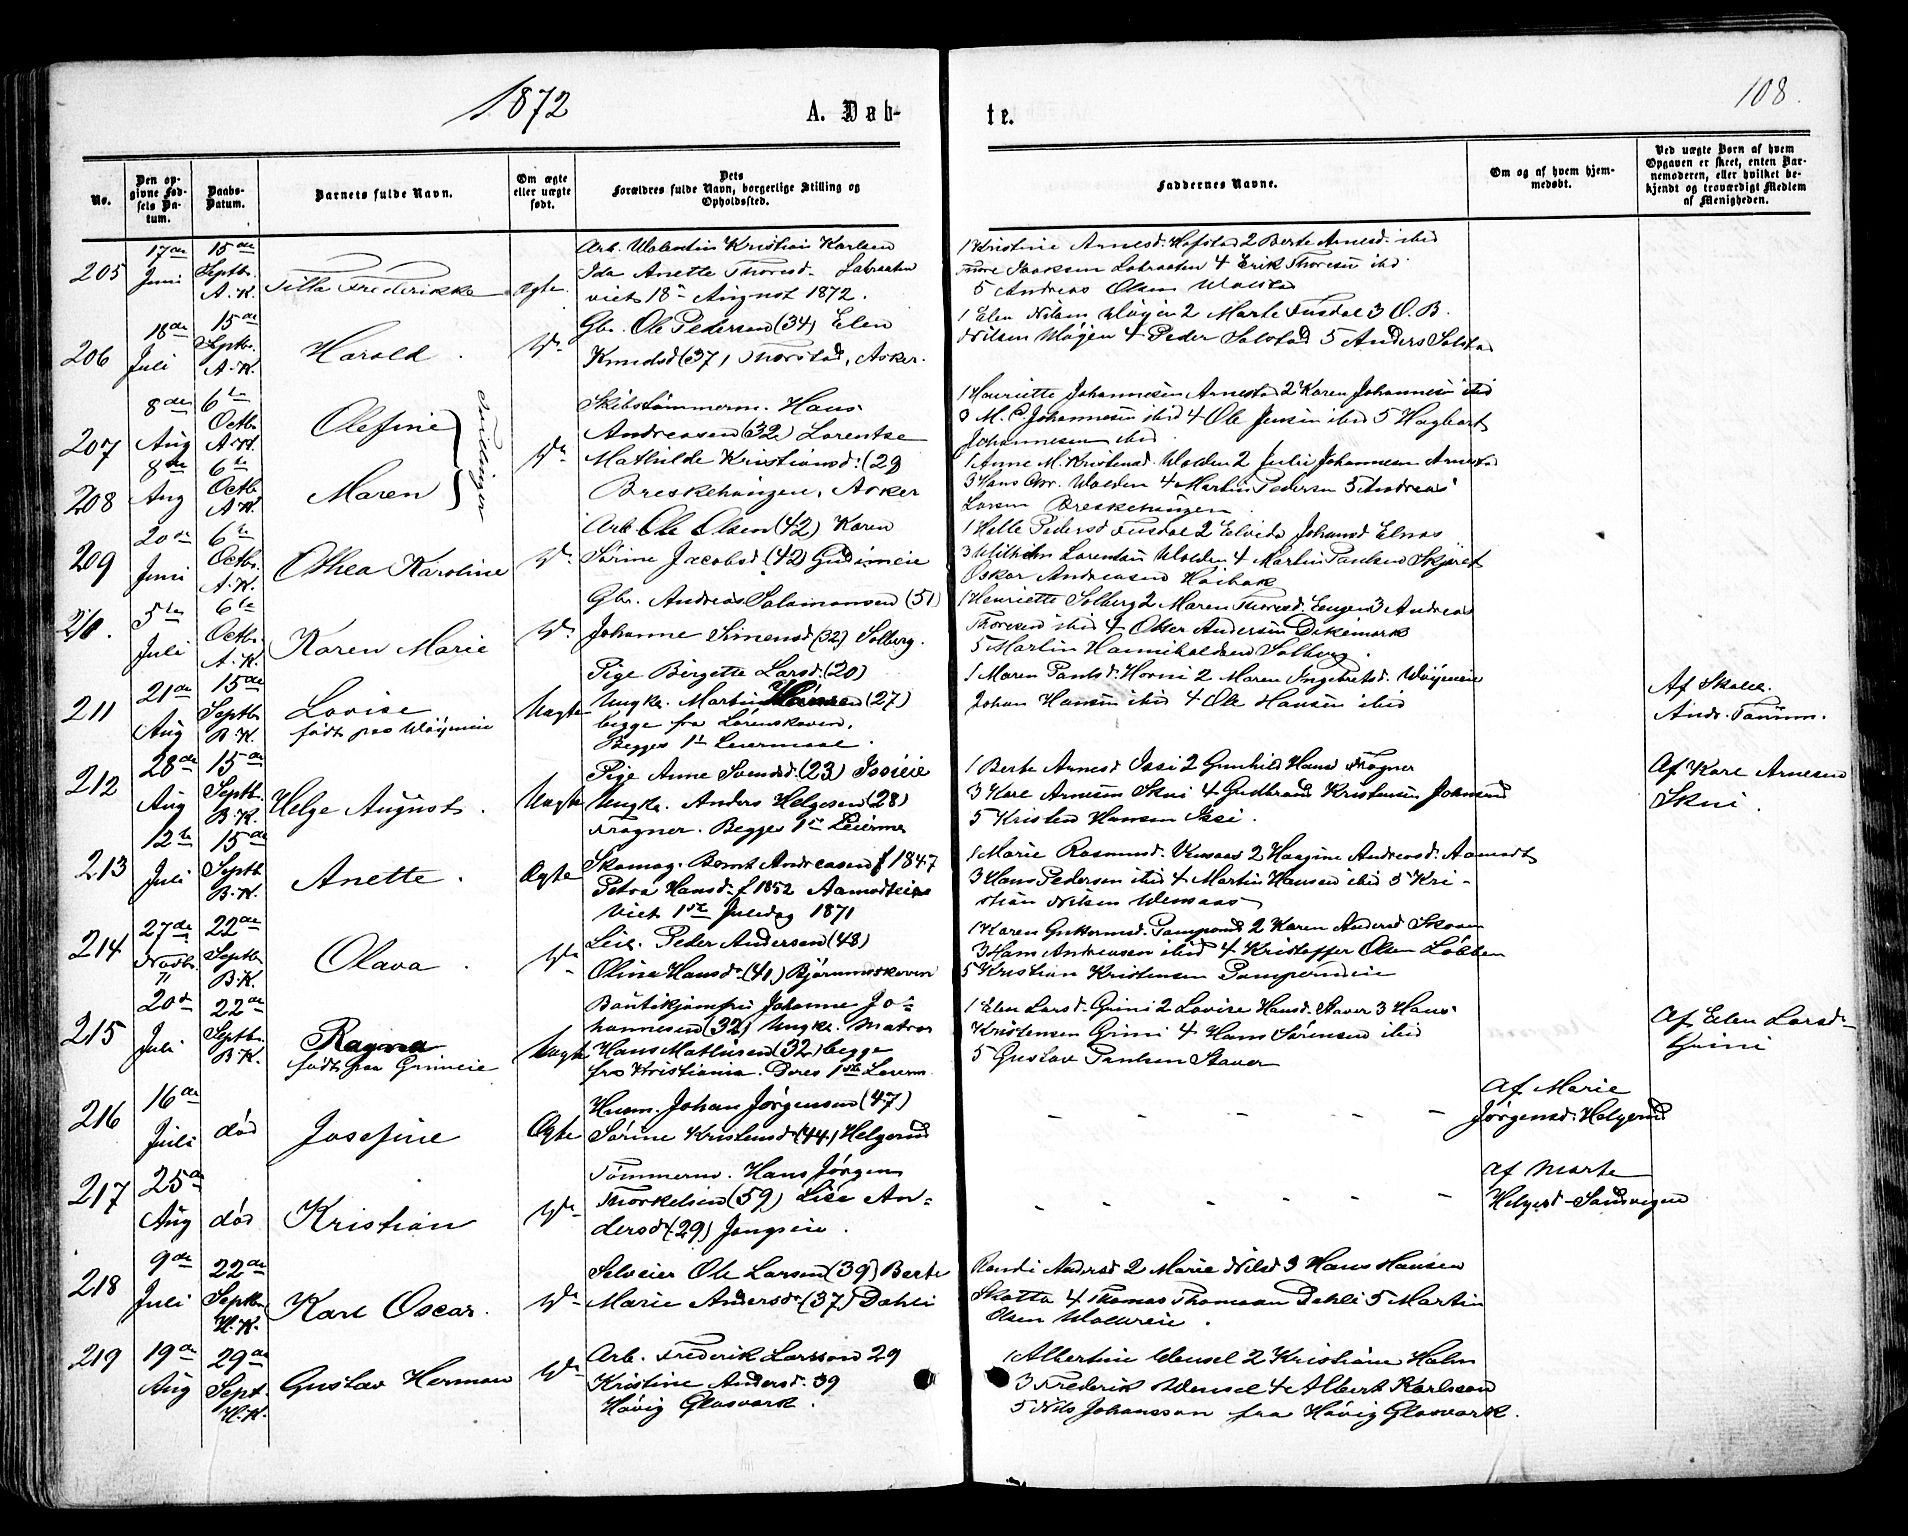 1872
A. Døb-
te.
108.
No.
Den op-
givne Fød-
sels Da-
tum.
Daabs-
Datum.
Barnets fulde Navn.
Om ægte
eller uægte
født.
Dets
Forældres fulde Navn, borgerlige Stilling og
Opholdssted.
Faddernes Navne.
Om og af hvem hjem-
medøbt.
Ved uægte Børn af hvem
Opgaven er skeet, enten Bar-
nemoderen, eller hvilket be-
kjendt og troværdigt Medlem
af Menigheden.
205
17de
Juni
15de
Septbr.
A.K.
Tilla Frederikke
Ægte
Arb. Valentin Kristian Karlsen
Ida Anette Thoresd.
viet 18de August 1872.
1 Kristine Arnesd. Hofstad 2 Berte Arnesd. ibid
Thore Isaksen 4 Erik Thoresen ibid
5 Andreas Olsen
206
18de
Juli
15de
Septbr.
A.K.
Harald.
Do
Gbr. Ole Pedersen (34) Elen
Knudsd (37) Thorstad, Asker.
1 Elen Nilsen Wøyen 2 Marte Tusdal 3 O.B.
Nilsen Wøyen 4 Peder Solstad 5 Anders Solstad
207
8de
Aug
6te
Octbr.
A.K.
Olefine
Tvillinger
Do
Skibstømmerm. Hans
Andreasen (32) Lorentse
Mathilde Kristiansd. (29
Breskehaugen, Asker
1 Henriette Johannesen Arnestad 2 Karen Johannesen ibid
3 M.C. Johannesen ibid 4 Ole Jensen ibid 5 Hagbart
Johannesen ibid
208
8de
Aug
6te
Octbr.
A.K.
Maren
1 Anne M. Kristensd. Wolden 2 Julie Johannesen Arnestad
3 Hans Chr. Wolden 4 Martin Pedersen 5 Andreas
Larsen Breskehaugen.
209
20de
Juni
6te
Octbr.
A.K.
Othea Karoline
Do
Arb. Ole Olsen (42) Karen
Sørine Jacobsd (42) Gudimeie
1 Helle Pedersd Tusdal 2 Elvida Johansd Elnæs
3 Wilhelm Lorentsen Wolden 4 Martin Paulsen Skjæret
Oskar Andreasen Høibak
210.
5te
Juli
6te
Octbr.
A.K.
Karen Marie
Do
Gbr. Andreas Salamonsen (51)
Johanne Simensd (32) Solberg.
1 Henriette Solberg 2 Maren Thoresd. Engen 3 Andreas
Thoresen ibid 4 Olser Andersen Dikemark
5 Martin Hanniboldsen Solberg.
211
21de
Aug
15de
Septbr.
B.K.
Lovise
født paa Wøyeneie
Uægte
Pige Birgette Larsd. (20)
Ungk. Martin Hansen (27)
begge fra Lørenskoven.
Begges 1ste Leiermaal.
1 Maren Paulsd. Horni 2 Maren Ingebretsd. Wøyeneie
Johan Hansen ibid 4 Ole Hansen ibid
Af Skoll.
Andr. Tanum.
212
28de
Aug
15de
Septbr.
B.K.
Helge August.
Uægte
Pige Anne Svendsd. (23) Issieie
Ungk. Anders Helgesen (28)
Frogner. Begges 1ste Leierm
1 Berte Arnesd Issi 2 Gunhild Hansd Frogner
3 Karl Arnesen Skui 4 Gudbrand Kristensen Johnsrud
5 Kristen Hansen Issi.
Af Karl Arnesen
Skui.
213
12te
Juli
15de
Septbr
B.K.
Anette.
Ægte
Skomag. Bernt Andreasen f 1847
Petra Hansd. f 1852 Aamodteie
Viet 1ste Juledag 1871
1 Marie Rasmusd. Wensaas 2 Haagine Andreasd. Aamodt
3 Hans Pedersen ibid 4 Martin Hansen ibid 5 Kri-
stian Nilsen Wensaas
214
27de
Novbr.
"
22de
Septbr
B.K.
Olava.
Do
Leil. Peder Andersen (43)
Olina Hansd. (41) Bjørumskoven
1 Karen Guttormsd. Pamperud 2 Karen Andersd Skoven
3 Hans Andreasen ibid 4 Kristoffer Olsen Løkken
5 Kristian Kristensen Pamperudeie
215
20de
Juli
22de
Septbr
B.K.
Ragna
født paa Grinieie
Uægte
Johanne Jo-
hannesen (32) Ungk. Matros
Hans Mathisen (32) begge
fra Kristiania. Deres 1ste Leierm
1 Elen Larsd. Grini 2 Lovise Hansd. Staver 3 Hans
Kristensen Grini 4 Hans Sørensen ibid
5 Gustav Paulsen Staver
Af Elen Larsd.
Grini
216
16de
Juli
død
Josefine
Ægte
Husm. Johan Jørgensen (47)
Sørine Kristensd (44) Helgerud
- - - - -
af Marie
Jørgensd. Helgerud
217
25de
Aug
død
Kristian
Do
Tømmerm. Hans Jørgen
Thorkelsen (59) Lise An-
dersd (29) Jongseie.
- - - - -
af Marte
Helgesd Sandvigen
218
9de
Juli
22de
Septbr
H.K.
Karl Oscar.
Do
Selveier Ole Larsen (39) Berte
Marie Andersd. (37) Dahli
Randi Andersd 2 Marie Nilsd 3 Hans Hansen
Skotta 4 Thomas Thomasen Dahli 5 Martin
Olsen
219
19de
Aug
29de
Sept.
H.K.
Gustav Herman
Do
Arb. Frederik Larsson 29
Kristine Andersd. 39
Høvig Glasværk.
1 Albertine Wensel 2 Kristiane Holm
3 Frederik Wensel 4 Albert Karlsson
5 Nils Johansson fra Høvig Glasværk.